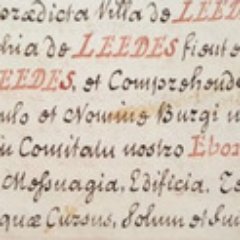 prædicta Villa de LEED
hia de LEEDES sicut e
EEDES, et Comprehende
ulo et Nomine Burgi u
in Comitatu nostro Ebor
Messuagia, Edificia, Te
quæ Cursus, Solum et fun